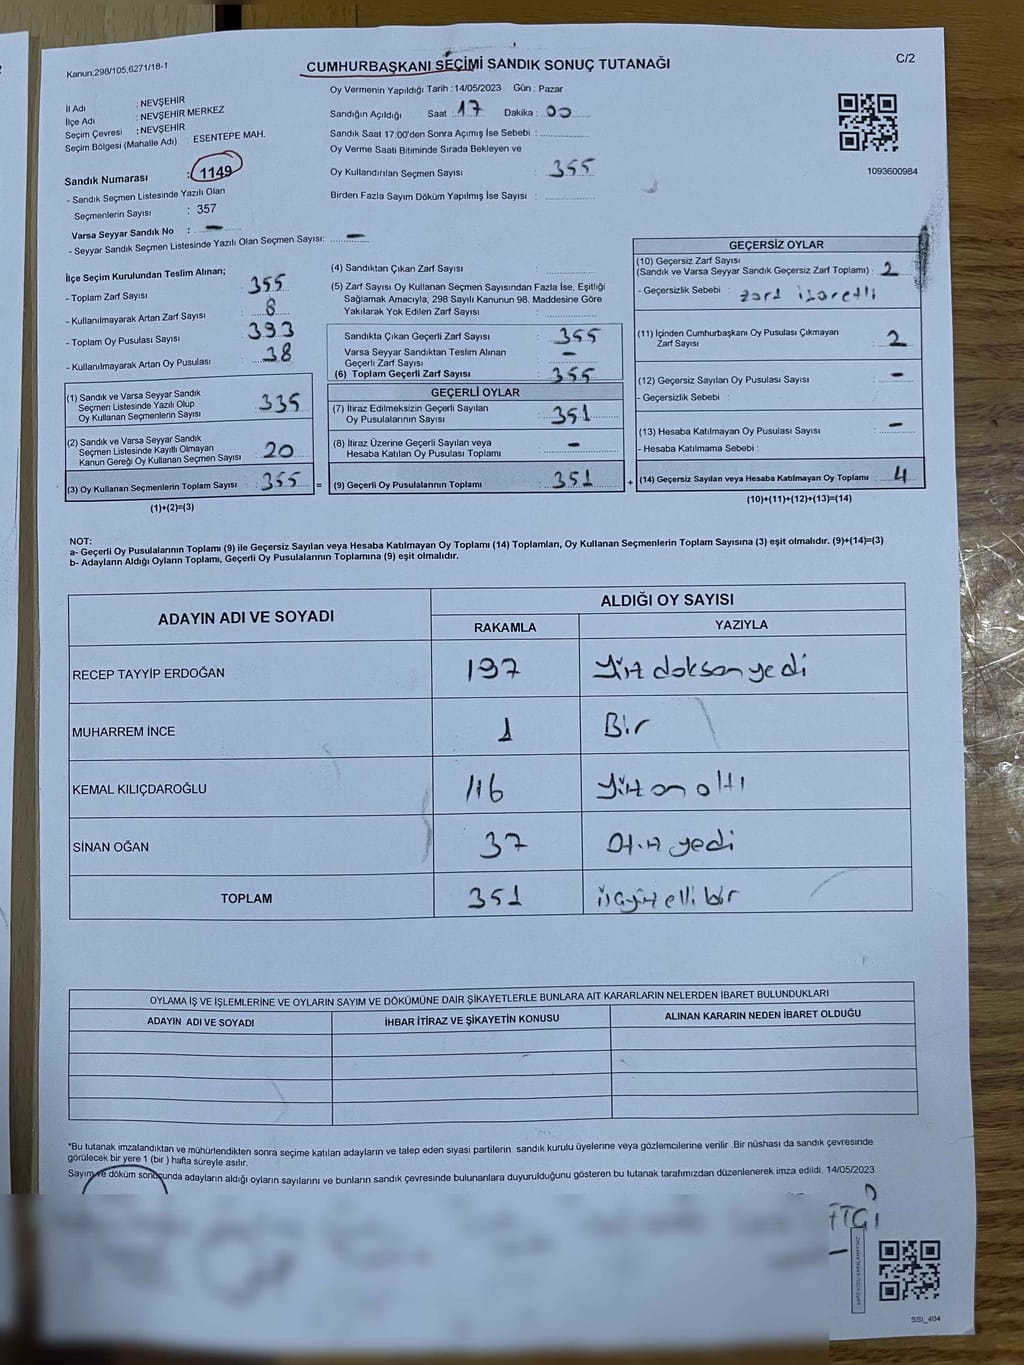 Kanun:298/105,6271/18-1
CUMHURBAŞKANI SEÇİMİ SANDIK SONUÇ TUTANAĞI
C/2
İl Adı : NEVŞEHİR
İlçe Adı : NEVŞEHİR MERKEZ
Seçim Çevresi : NEVŞEHİR
Seçim Bölgesi (Mahalle Adı) : ESENTEPE MAH.
Sandık Numarası : 1149
- Sandık Seçmen Listesinde Yazılı Olan
Seçmenlerin Sayısı : 357
Varsa Seyyar Sandık No : -
- Seyyar Sandık Seçmen Listesinde Yazılı Olan Seçmen Sayısı: -
Oy Vermenin Yapıldığı Tarih :14/05/2023 Gün : Pazar
Sandığın Açıldığı Saat : 17 Dakika : 00
Sandık Saat 17:00'den Sonra Açımış İse Sebebi :
Oy Verme Saati Bitiminde Sırada Bekleyen ve
Oy Kullandırılan Seçmen Sayısı : 355
Birden Fazla Sayım Döküm Yapılmış İse Sayısı :
1093600984
İlçe Seçim Kurulundan Teslim Alınan;
- Toplam Zarf Sayısı : 355
- Kullanılmayarak Artan Zarf Sayısı : 8
- Toplam Oy Pusulası Sayısı : 393
- Kullanılmayarak Artan Oy Pusulası : 38
(1) Sandık ve Varsa Seyyar Sandık
Seçmen Listesinde Yazılı Olup
Oy Kullanan Seçmenlerin Sayısı : 335
(2) Sandık ve Varsa Seyyar Sandık
Seçmen Listesinde Kayıtlı Olmayan
Kanun Gereği Oy Kullanan Seçmen Sayısı : 20
(3) Oy Kullanan Seçmenlerin Toplam Sayısı : 355 =
(1)+(2)=(3)
(4) Sandıktan Çıkan Zarf Sayısı :
(5) Zarf Sayısı Oy Kullanan Seçmen Sayısından Fazla İse, Eşitliği
Sağlamak Amacıyla; 298 Sayılı Kanunun 98. Maddesine Göre
Yakılarak Yok Edilen Zarf Sayısı :
Sandıkta Çıkan Geçerli Zarf Sayısı : 355
Varsa Seyyar Sandıktan Teslim Alınan
Geçerli Zarf Sayısı : -
(6) Toplam Geçerli Zarf Sayısı : 355
GEÇERLİ OYLAR
(7) İtiraz Edilmeksizin Geçerli Sayılan
Oy Pusulalarının Sayısı : 351
(8) İtiraz Üzerine Geçerli Sayılan veya
Hesaba Katılan Oy Pusulası Toplamı : -
(9) Geçerli Oy Pusulalarının Toplamı : 351 +
GEÇERSİZ OYLAR
(10) Geçersiz Zarf Sayısı
(Sandık ve Varsa Seyyar Sandık Geçersiz Zarf Toplamı) : 2
- Geçersizlik Sebebi : zarf işaretli
(11) İçinden Cumhurbaşkanı Oy Pusulası Çıkmayan
Zarf Sayısı : 2
(12) Geçersiz Sayılan Oy Pusulası Sayısı : -
- Geçersizlik Sebebi :
(13) Hesaba Katılmayan Oy Pusulası Sayısı : -
- Hesaba Katılmama Sebebi :
(14) Geçersiz Sayılan veya Hesaba Katılmayan Oy Toplamı : 4
(10)+(11)+(12)+(13)=(14)
NOT:
a- Geçerli Oy Pusulalarının Toplamı (9) ile Geçersiz Sayılan veya Hesaba Katılmayan Oy Toplamı (14) Toplamları, Oy Kullanan Seçmenlerin Toplam Sayısına (3) eşit olmalıdır. (9)+(14)=(3)
b- Adayların Aldığı Oyların Toplamı, Geçerli Oy Pusulalarının Toplamına (9) eşit olmalıdır.
ADAYIN ADI VE SOYADI
ALDIĞI OY SAYISI
RAKAMLA YAZIYLA
RECEP TAYYİP ERDOĞAN 197 Yüz doksan yedi
MUHARREM İNCE 1 Bir
KEMAL KILIÇDAROĞLU 116 Yüz on altı
SİNAN OĞAN 37 Otuz yedi
TOPLAM 351 üçyüz elli bir
OYLAMA İŞ VE İŞLEMLERİNE VE OYLARIN SAYIM VE DÖKÜMÜNE DAİR ŞİKAYETLERLE BUNLARA AİT KARARLARIN NELERDEN İBARET BULUNDUKLARI
ADAYIN ADI VE SOYADI İHBAR İTİRAZ VE ŞİKAYETİN KONUSU ALINAN KARARIN NEDEN İBARET OLDUĞU
*Bu tutanak imzalandıktan ve mühürlendikten sonra seçime katılan adayların ve talep eden siyasi partilerin sandık kurulu üyelerine veya gözlemcilerine verilir .Bir nüshası da sandık çevresinde
görülecek bir yere 1 (bir ) hafta süreyle asılır.
Sayım ve döküm sonucunda adayların aldığı oyların sayılarını ve bunların sandık çevresinde bulunanlara duyurulduğunu gösteren bu tutanak tarafımızdan düzenlenerek imza edildi. 14/05/2023
SSI_404